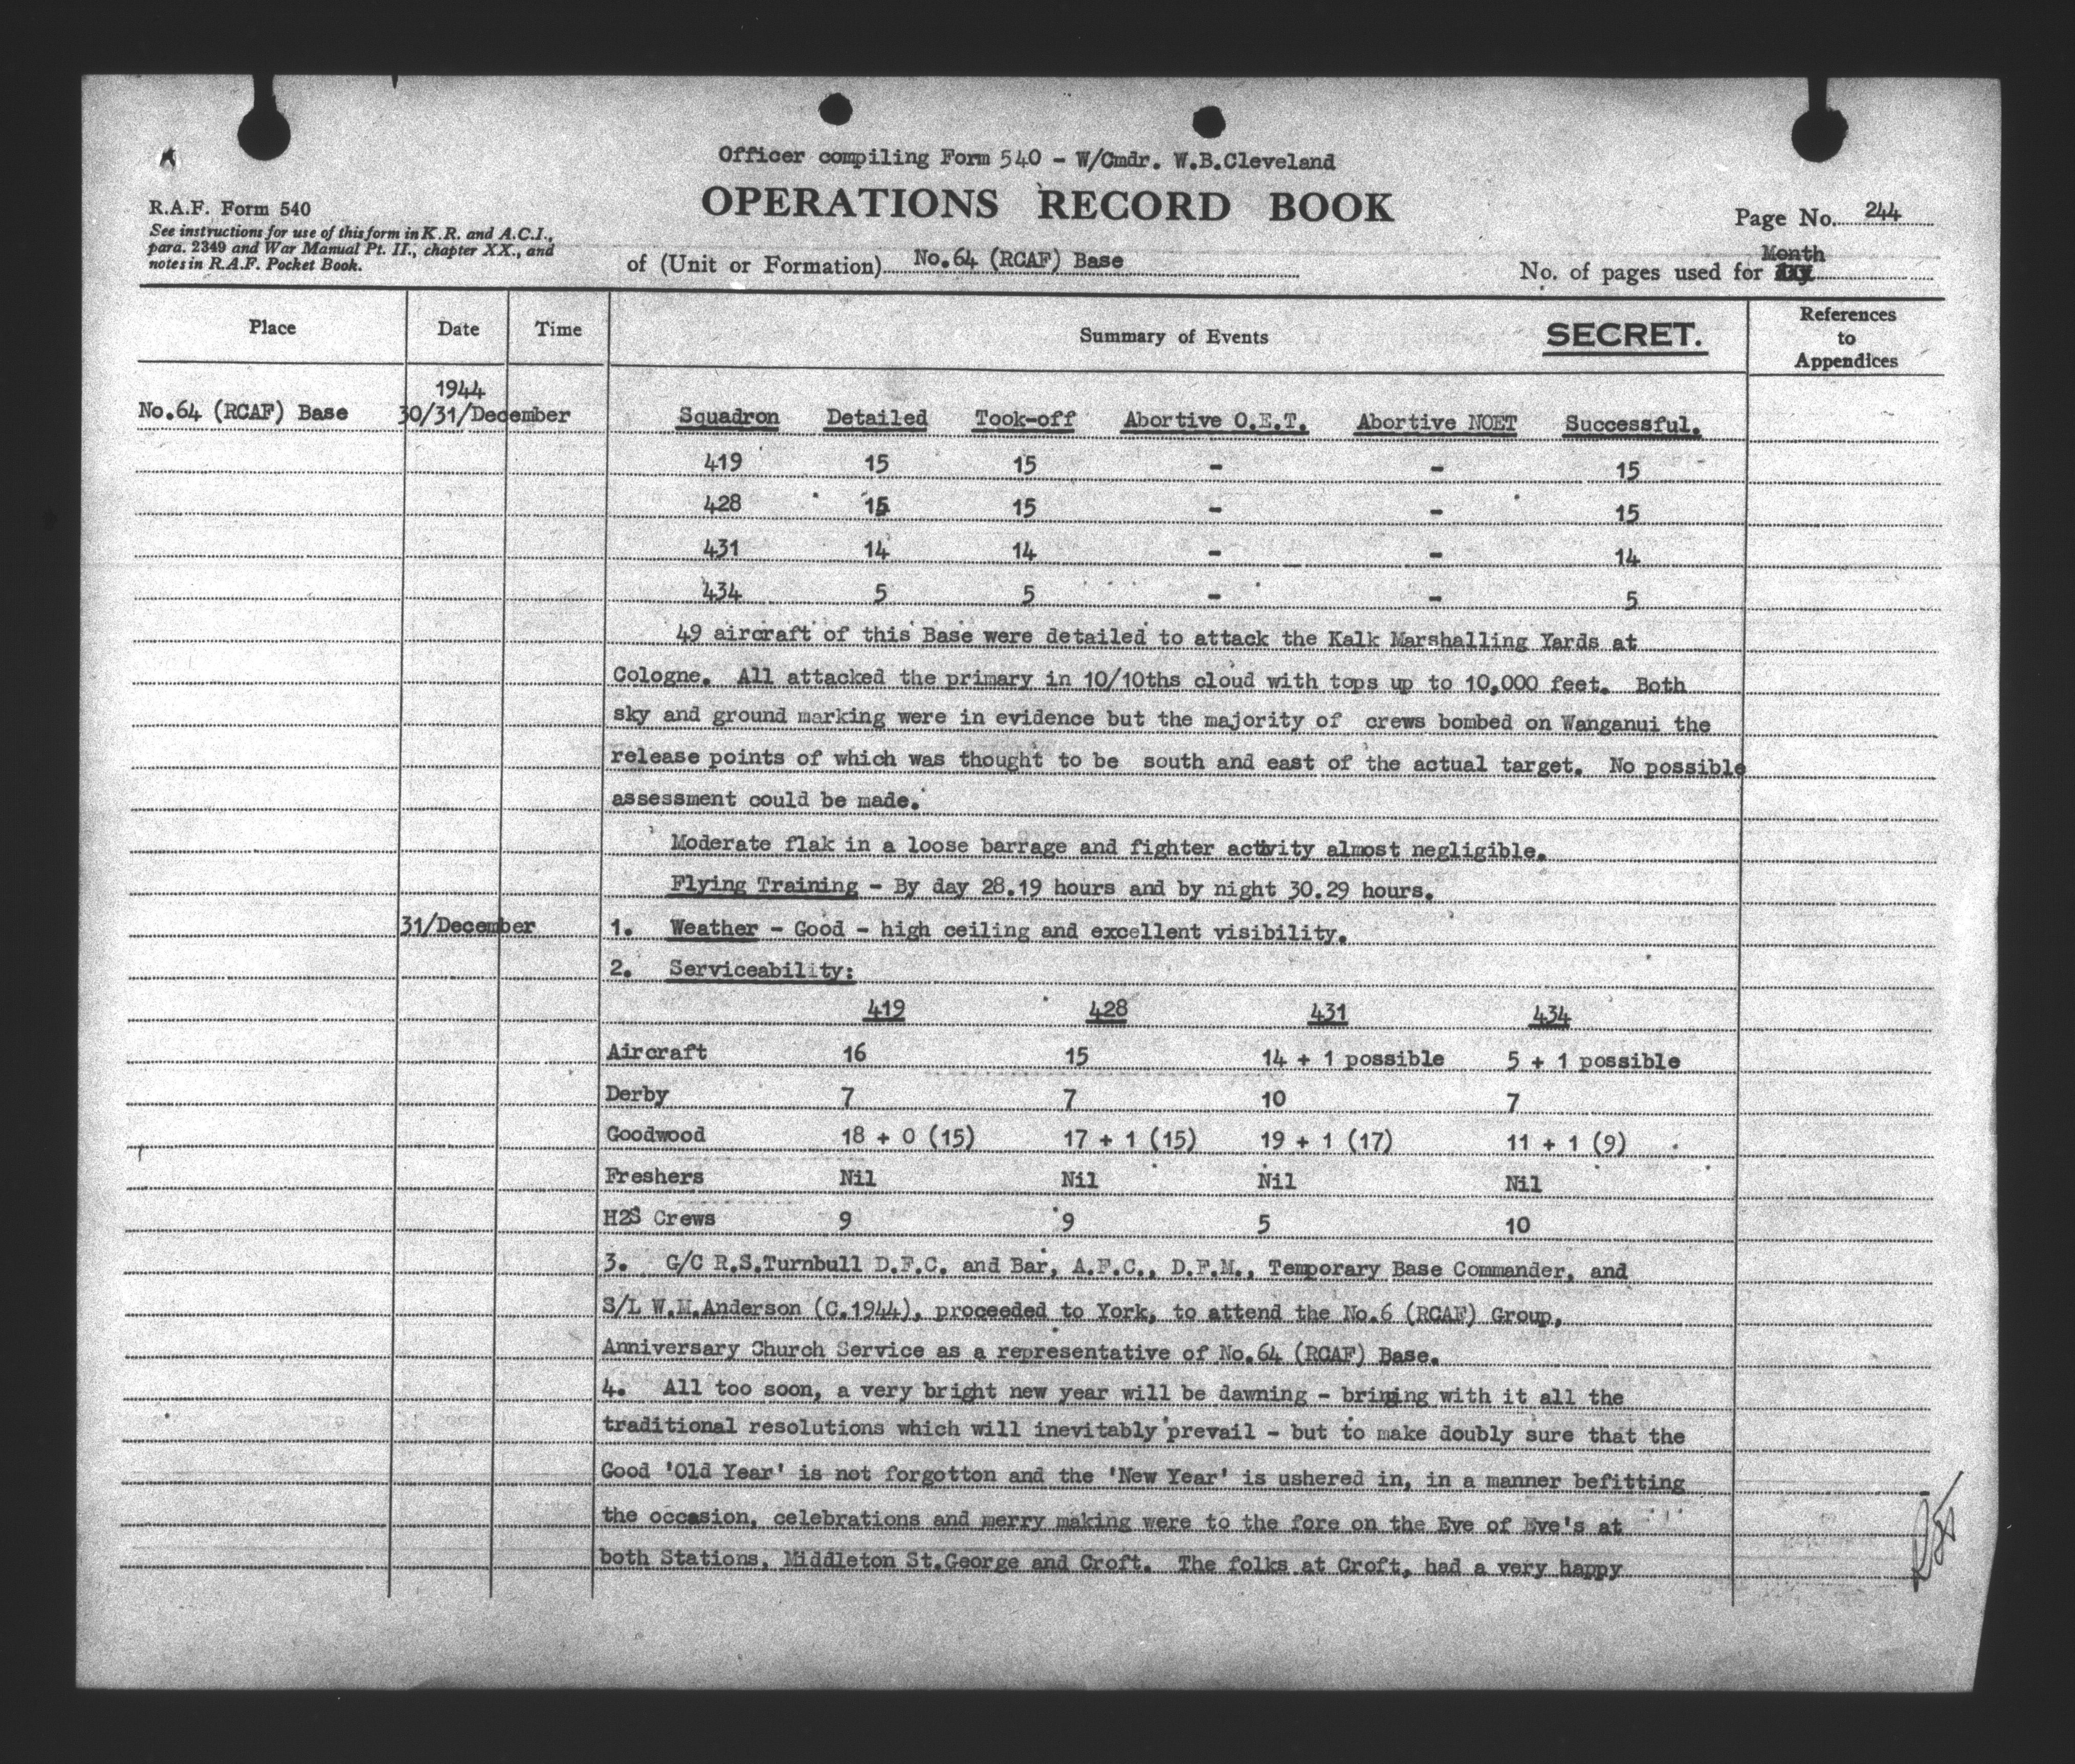 Officer compiling Form 540 - W/Cmdr. W.B.Cleveland
OPERATIONS RECORD BOOK
R.A.F. Form 540
See instructions for use of this form in K.R. and A.C.I.,
para. 2349 and War Manual Pt. II., chapter XX., and
notes in R.A.F. Pocket Book.
Page No. 244
of (Unit or Formation) No.64 (RCAF) Base
No. of pages used for Month
Place Date Time Summary of Events SECRET. References to Appendices
1944
No.64 (RCAF) Base 30/31/December Squadron Detailed Took-off Abortive O.E.T. Abortive NOET Successful.
419 15 15 - - 15
428 15 15 - - 15
431 14 14 - - 14
434 5 5 - - 5
49 aircraft of this Base were detailed to attack the Kalk Marshalling Yards at
Cologne. All attacked the primary in 10/10ths cloud with tops up to 10,000 feet. Both
sky and ground marking were in evidence but the majority of crews bombed on Wanganui the
release points of which was thought to be south and east of the actual target. No possible
assessment could be made.
Moderate flak in a loose barrage and fighter activity almost negligible.
Flying Training - By day 28.19 hours and by night 30.29 hours.
31/December 1. Weather - Good - high ceiling and excellent visibility.
2. Serviceability:
419 428 431 434
Aircraft 16 15 14 + 1 possible 5 + 1 possible
Derby 7 7 10 7
Goodwood 18 + 0 (15) 17 + 1 (15) 19 + 1 (17) 11 + 1 (9)
Freshers Nil Nil Nil Nil
H2S Crews 9 9 5 10
3. G/C R.S.Turnbull D.F.C. and Bar, A.F.C., D.F.M., Temporary Base Commander, and
S/L W.M.Anderson (C.1944), proceeded to York, to attend the No.6 (RCAF) Group,
Anniversary Church Service as a representative of No.64 (RCAF) Base.
4. All too soon, a very bright new year will be dawning - bringing with it all the
traditional resolutions which will inevitably prevail - but to make doubly sure that the
Good 'Old Year' is not forgotton and the 'New Year' is ushered in, in a manner befitting
the occasion, celebrations and merry making were to the fore on the Eve of Eve's at
both Stations, Middleton St.George and Croft. The folks at Croft, had a very happy